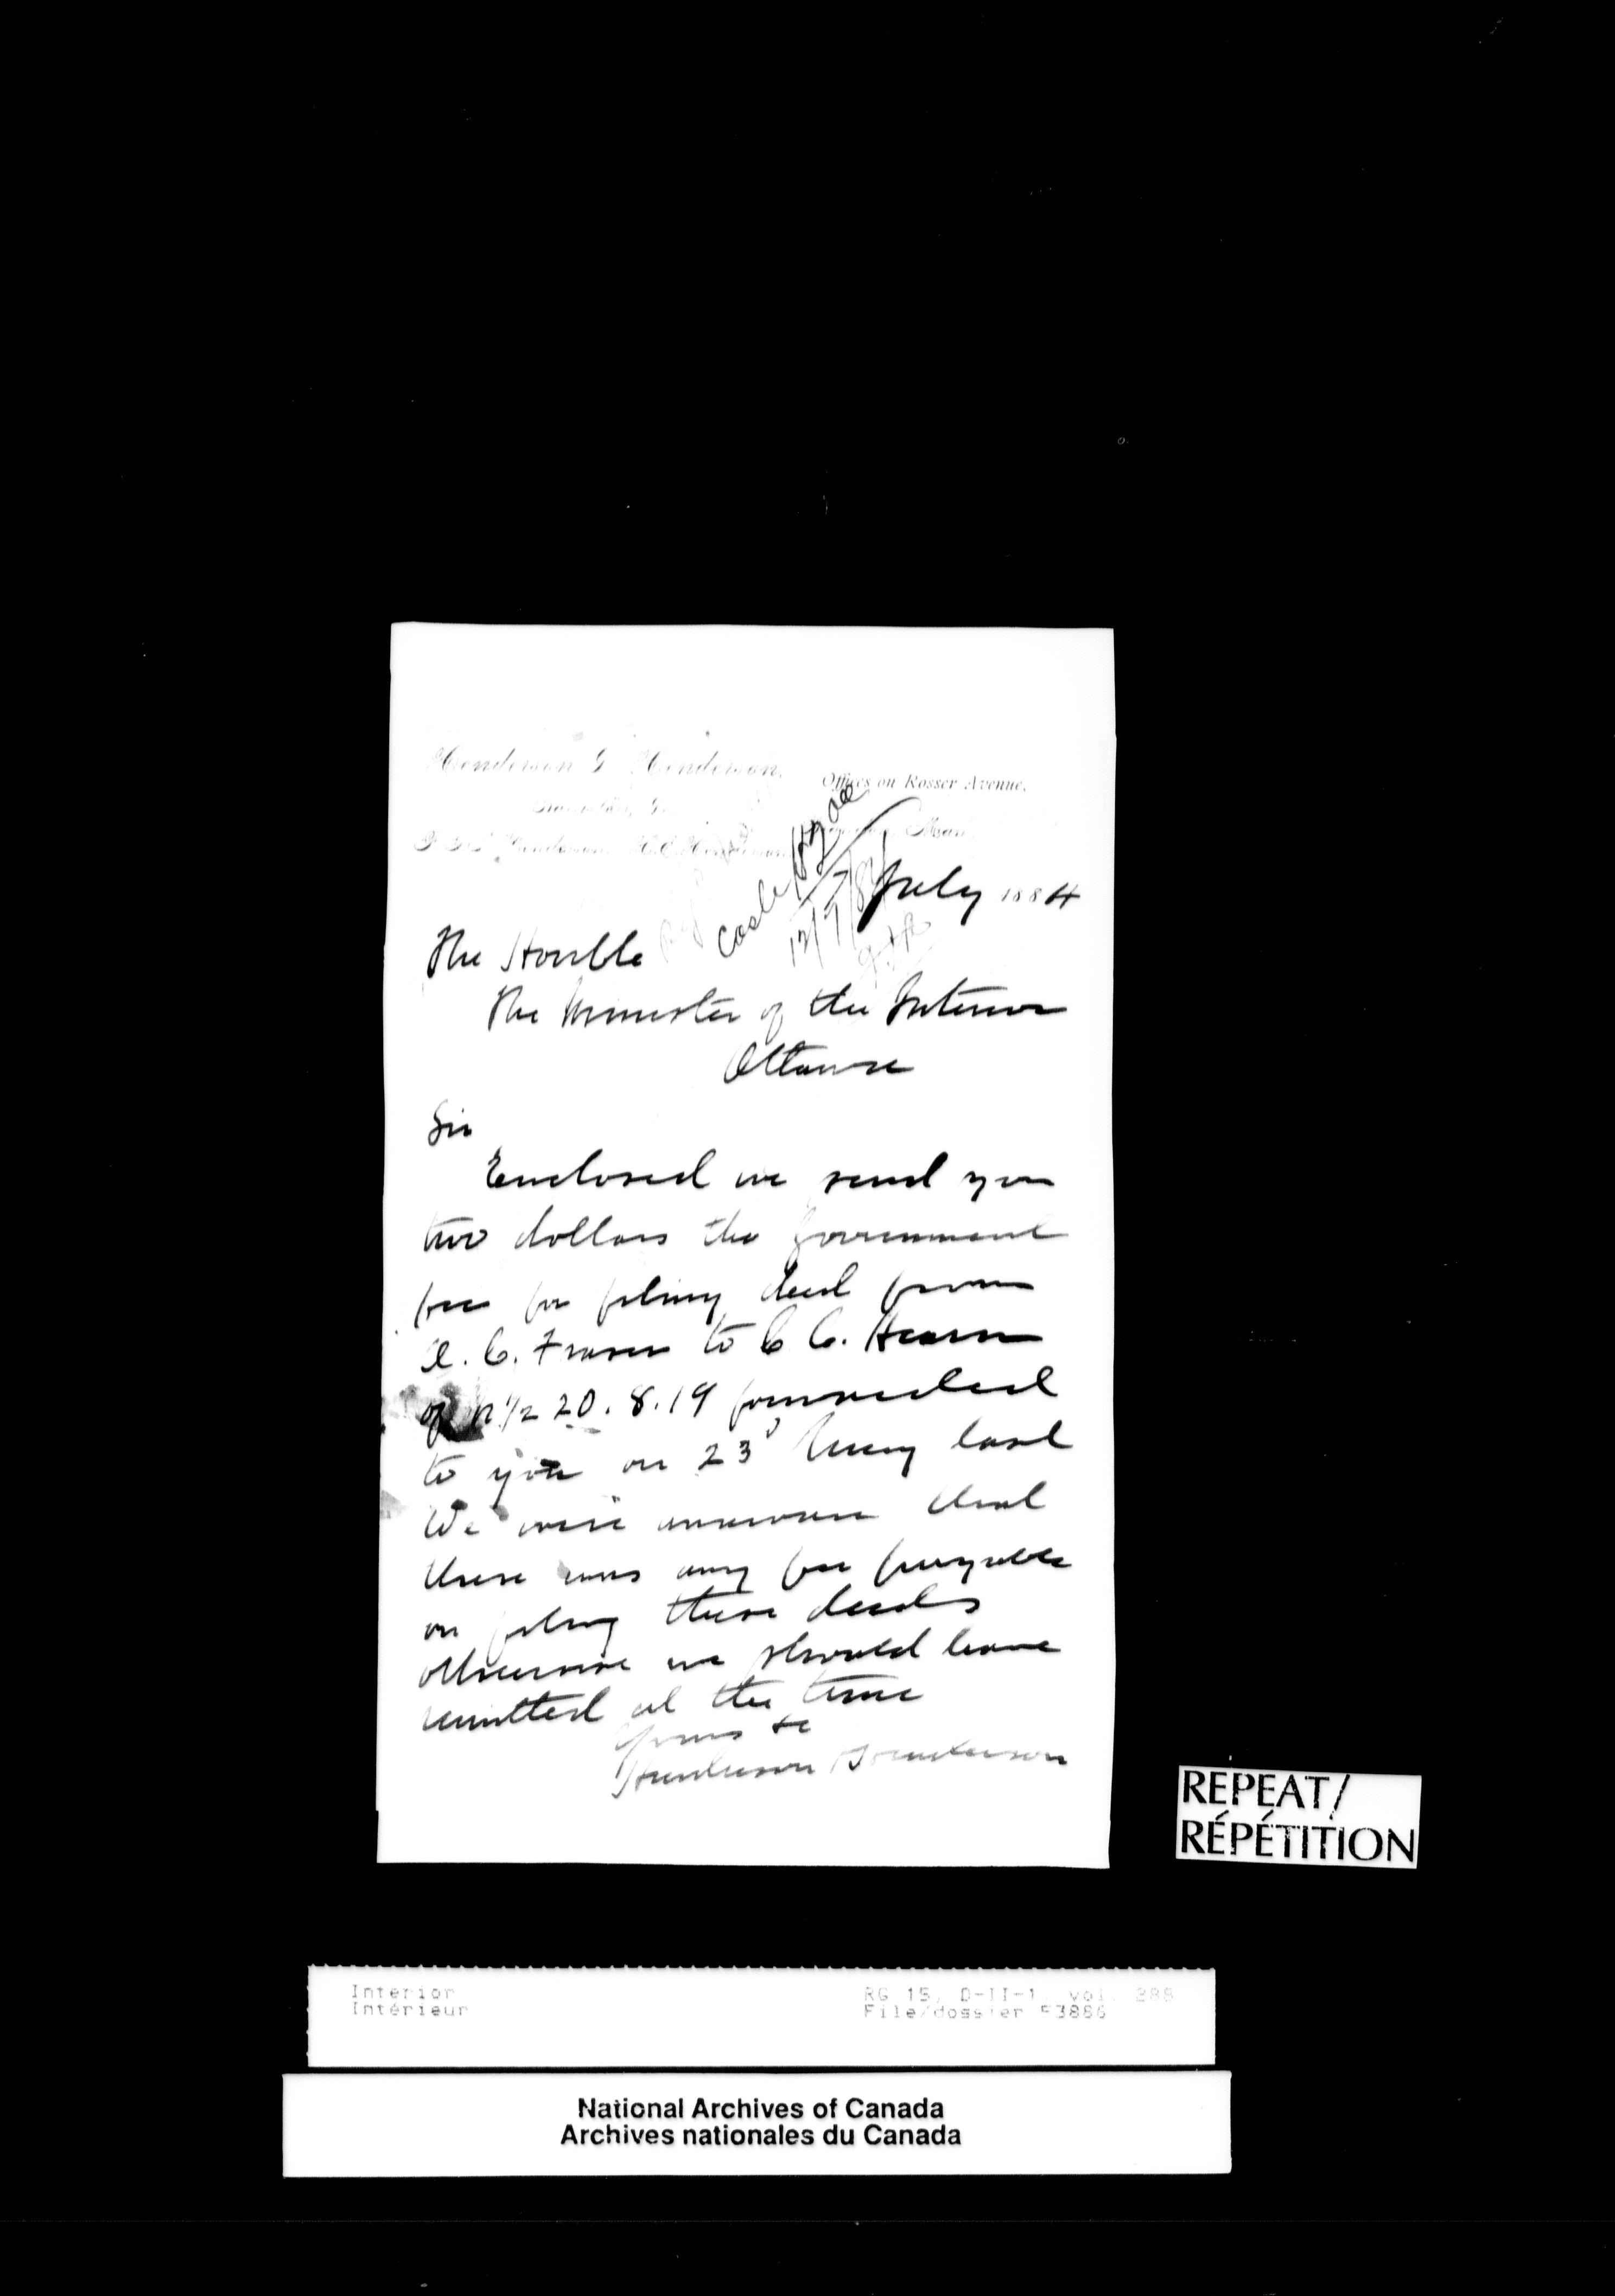 Henderson & Henderson,
Offices on Rosser Avenue,
Man
Cash $2.00
12/7/84
7 July 1884
The Honble
The Minister of the Interior
Ottawa
Sir
Enclosed we send you
two dollars the government
fee for filing deed from
A. C. Fraser to C C. Hearn
of N 1/2 20. 8. 19 forwarded
to you on 23d May last
We were unaware that
there was any fee payable
on filing these deeds
otherwise we should have
remitted at the time
Yours &c
Henderson & Henderson
REPEAT/
RÉPÉTITION
Interior
Intérieur
RG 15, D-II-1, vol. 288
File/dossier 53886
National Archives of Canada
Archives nationales du Canada